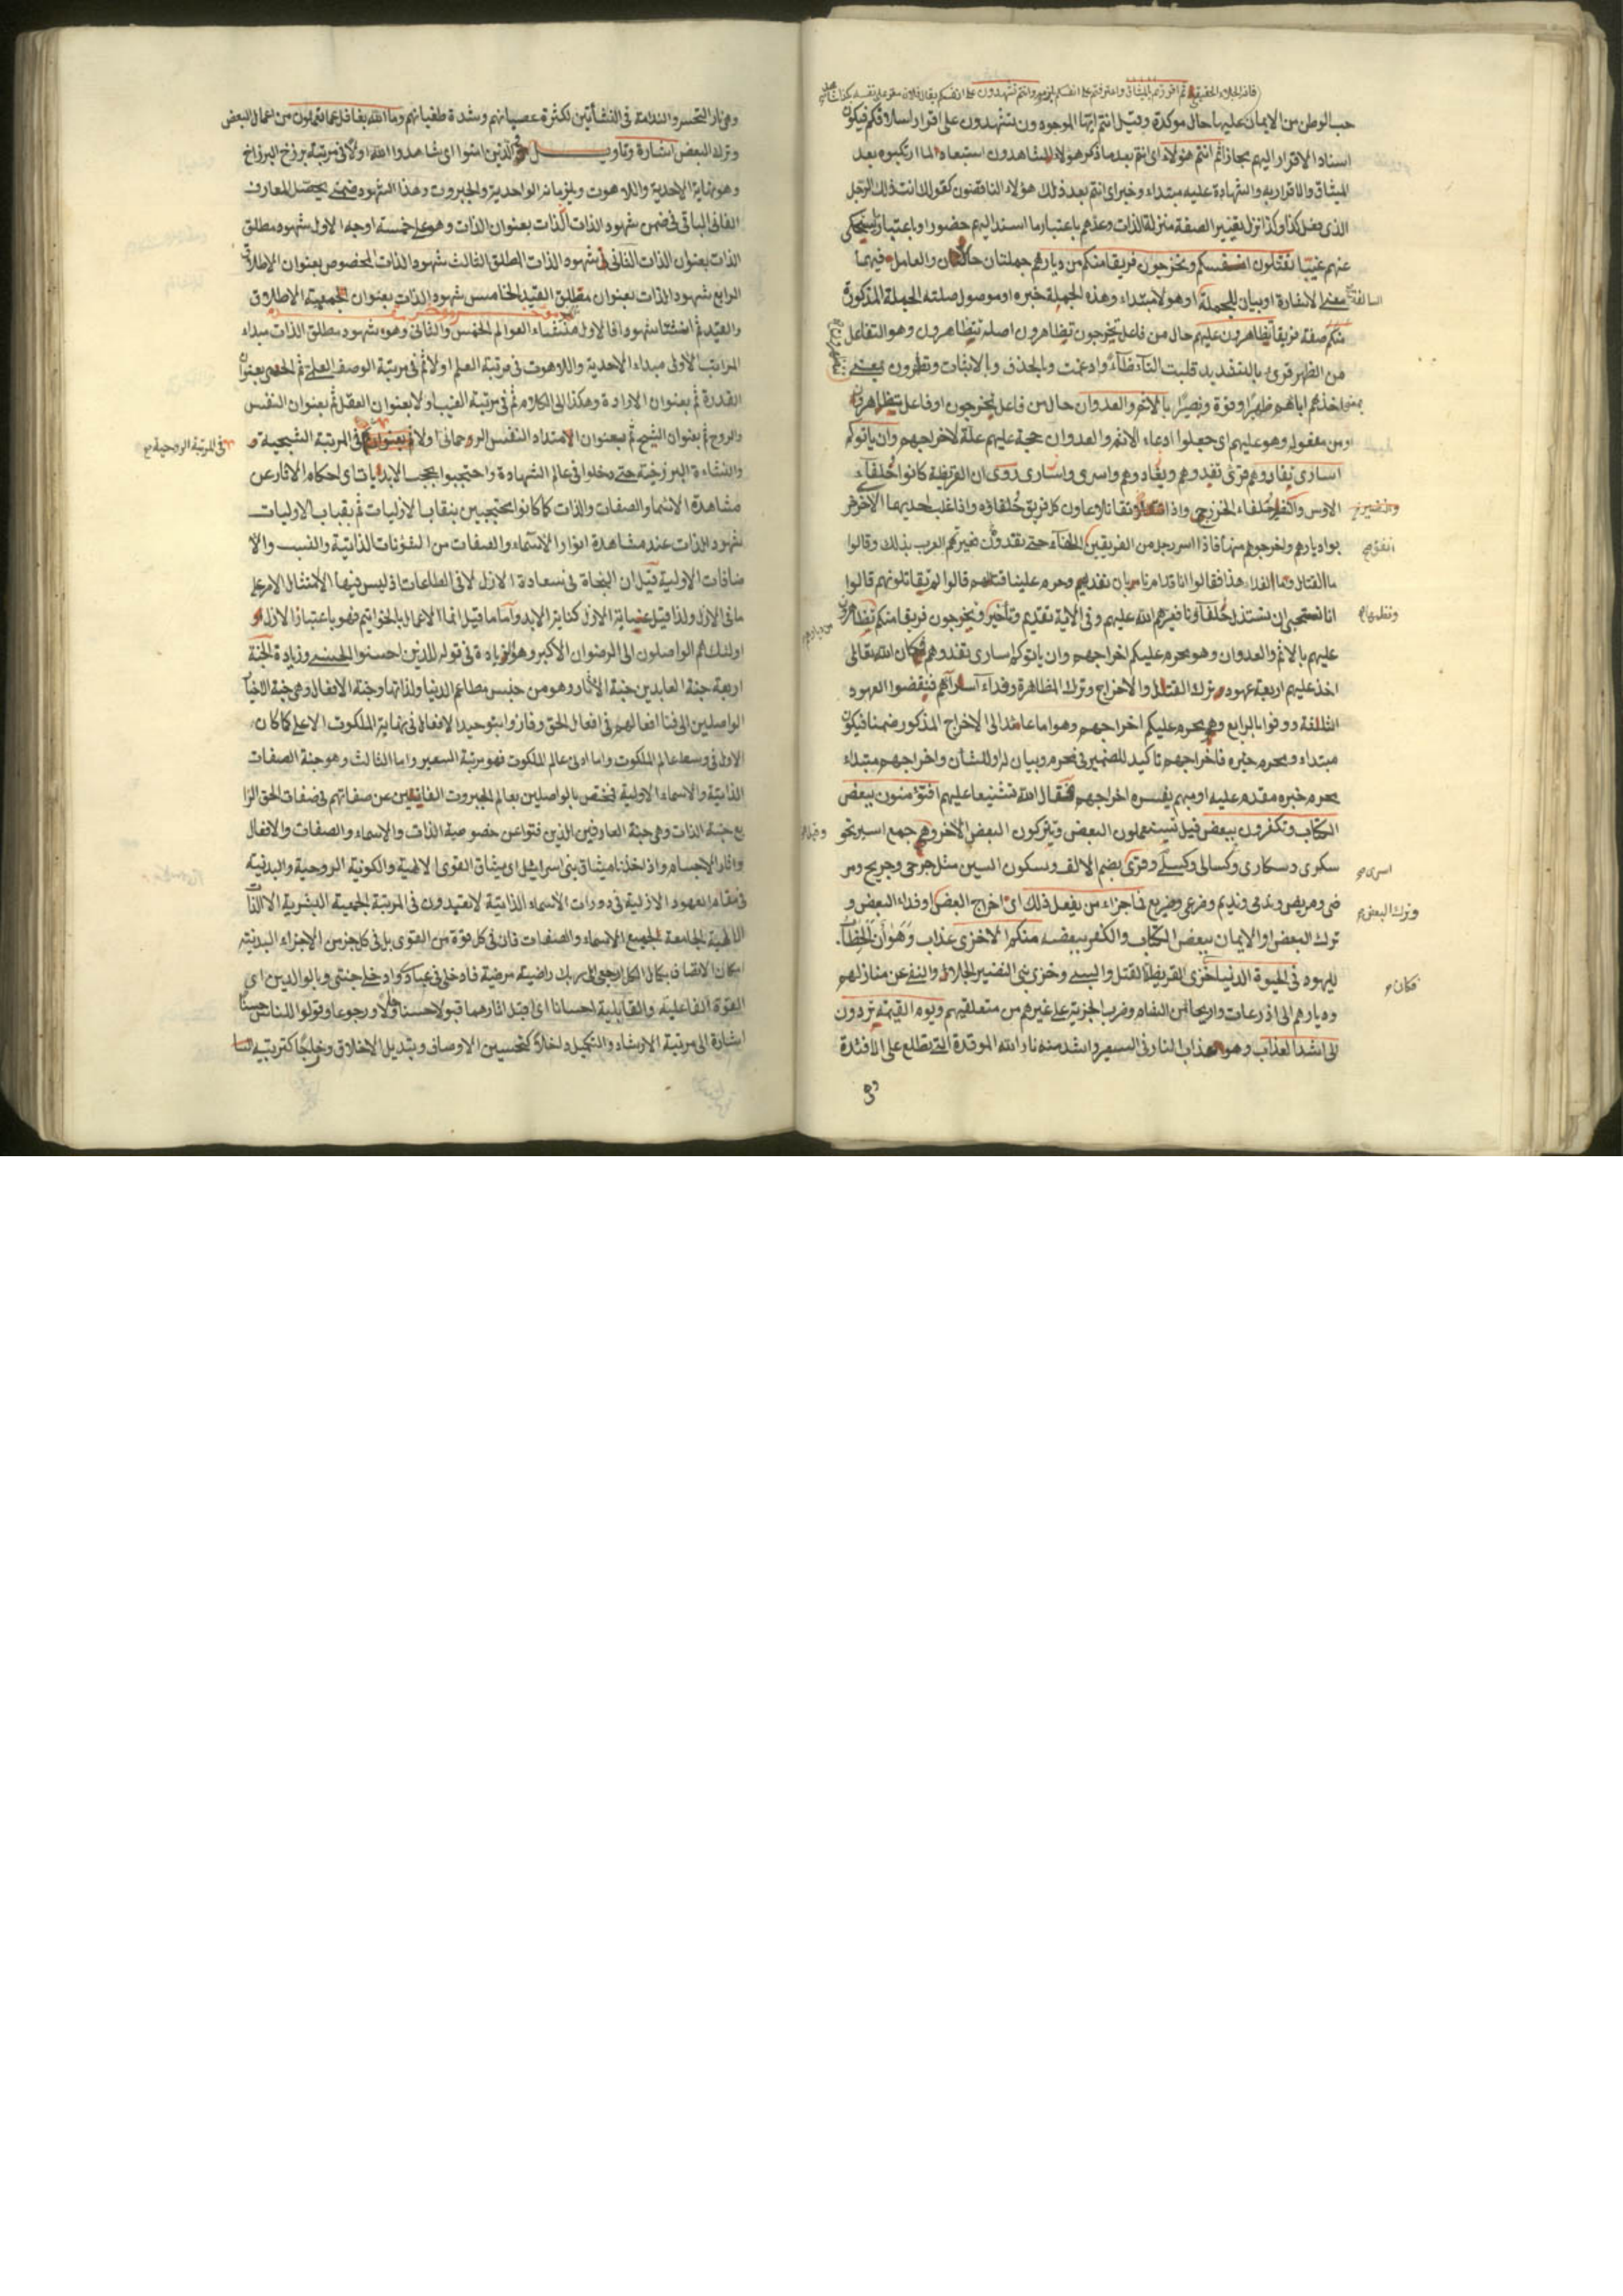 حب الوطن من الايمان عليها حال موكدة وقيل انتم ايها الموجودون تشهدون على اقرار اسلافكم فيكون
اسناد الاقرار اليهم مجازا ثم انتم هؤلاء اى انتم بعد ما ذكر هؤلاء المشاهدون استبعاد لما ارتكبوه بعد
الميثاق والاقرار به والشهادة عليه مبتداء وخبر اى انتم بعد ذلك هؤلاء الناقضون كقولك انت ذلك الرجل
الذى فعل كذا وكذا نزل تغيير الصفة منزلة الذات وعدهم باعتبار ما اسند اليهم حضورا وباعتبار ما سيحكى
عنهم غيبا تقتلون انفسكم وتخرجون فريقا منكم من ديارهم جملتان حالان والعامل فيهما
معنى الاشارة او بيان للجملة او هؤلاء مبتداء وهذه الجملة خبره او موصول صلته الجملة المذكورة
منكم صفة فريقا تظاهرون عليهم حال من فاعل تخرجون تظاهرون اصله تتظاهرون وهو التفاعل
من الظهر قرئ بالتشديد قلبت التاء ظاء وادغمت وبالحذف وبالاثبات وتظهرون بمعنى
اتخذتم اياهم ظهيرا وقوة ونصيرا بالاثم والعدوان حال من فاعل تخرجون او فاعل تظاهرون
او من مفعوله وهو عليهم اى جعلوا ادعاء الاثم والعدوان حجة عليهم علة لاخراجهم وان ياتوكم
اسارى تفادوهم قرئ تفدوهم وتفادوهم واسرى واسارى روى ان القريظة كانوا حلفاء
الاوس والنضير حلفاء الخزرج واذا تقاتلا عاون كل فريق حلفاؤه واذا غلب احديهما الاخر خر
بوا ديارهم واخرجوهم منها فاذا اسر رجل من الفريقين حتى تفدون غيرتهم العرب بذلك وقالوا
ما القتال وما الفداء هذا فقالوا انا قد امرنا بان نفديهم وحرم علينا قتالهم قالوا لم تقاتلونهم قالوا
انا نستحيى ان نستذل حلفاؤنا فعيرهم الله عليهم وفى الاية تقديم وتأخير وتخرجون فريقا منكم تظاهرون
عليهم بالاثم والعدوان وهو محرم عليكم اخراجهم وان ياتوكم اسارى تفدوهم فكان الله تعالى
اخذ عليهم اربعة عهود ترك القتل والاخراج وترك المظاهرة وفداء اساراهم فنقضوا العهود
الثلثة ووفوا بالرابع وهو محرم عليكم اخراجهم وهو اما عائد الى الاخراج المذكور ضمنا فيكون
مبتداء ومحرم خبره فاخراجهم تاكيد للضمير فى محرم وبيان له او للشأن واخراجهم مبتداء
محرم خبره مقدم عليه او مبهم يفسره اخراجهم فقال الله تشنيعا عليهم افتؤمنون ببعض
الكتاب وتكفرون ببعض قيل تستعملون البعض وتتركون البعض الاخر وهم جمع اسير نحو
سكرى وسكارى وكسالى وكسلى وقرئ بضم الالف وسكون السين مثل جرحى وجريح ومر
ضى ومريض وندمى ونديم وضرعى وضريع فما جزاء من يفعل ذلك اى اخراج البعض او فداء البعض و
ترك البعض او الايمان ببعض الكتاب والكفر ببعضه منكم الا خزى عذاب وهوان
لليهود فى الحيوة الدنيا خزى القريظة القتل والسبى وخزى بنى النضير الجلاء والنفى عن منازلهم
وديارهم الى اذرعات واريحا من الشام وضرب الجزية على غيرهم من متعلقيهم ويوم القيمة تردون
الى اشد العذاب وهو عذاب النار فى السعير واشد منه نار الله الموقدة التى تطلع على الافئدة
وهى نار التحسر والندامة فى النشأتين لكثرة عصيانهم وشدة طغيانهم وما الله بغافل عما تعملون من اعمال البعض
وترك البعض اشارة وتاويل والذين امنوا اى شاهدوا الله اولا فى مرتبة برزخ البرازخ
وهو نهاية الاحدية واللاهوت ويلزمها الواحدية والجبروت وهذا الشهود ضمنى يحصل للعارف
الفانى الباقى فى ضمن شهود الذات الذات بعنوان الذات وهو على خمسة اوجه الاول شهود مطلق
الذات بعنوان الذات الثانى شهود الذات المطلق الثالث شهود الذات المخصوص بعنوان الاطلاق
الرابع شهود الذات بعنوان مطلق القيد الخامس شهود الذات بعنوان الجمعية الاطلاق
والقيد ثم انشئنا شهودا فالاول منشاء العوالم الخمس والثانى وهو شهود مطلق الذات مبداء
المراتب الاولى مبداء الاحدية واللاهوت فى مرتبة العلم اولا ثم فى مرتبة الوصف العلمى ثم بعنوان
القدرة ثم بعنوان الارادة وهكذا الى الكلام ثم فى مرتبة الغيب اولا بعنوان العقل ثم بعنوان النفس
والروح ثم بعنوان الشبح ثم بعنوان الامتداد النفس الروحانى اولا ثم بعنوان فى المرتبة الشبحية و
فى المرتبة الروحية
والنشاءة البرزخية حتى دخلوا فى عالم الشهادة واحتجبوا بحجب الابديات اى احكام الاثار عن
مشاهدة الاسماء والصفات والذات كما كانوا محتجبين بنقاب الازليات ثم بقباب الاوليات
شهود الذات عند مشاهدة انوار الاسماء والصفات من الشؤنات الذاتية والنسب والا
ضافات الاولية قيل ان النجاة فى سعادة الازل لا فى الطاعات اذ ليس فيها الا امتثال الامر على
ما فى الازل ولذا قيل عناية الازل كفاية الابد واما ما قيل انما الاعمال بالخواتيم فهو باعتبار الازل و
اولئك هم الواصلون الى الرضوان الاكبر وهو زيادة فى قوله للذين احسنوا الحسنى وزيادة الجنة
اربعة جنة العابدين جنة الاثار وهو من جنس مطاعم الدنيا ولذاتها وجنة الافعال وهى جنة
الواصلين الى فنا افعالهم فى افعال الحق وفازوا بتوحيد الافعال فى نهاية الملكوت الاعلى كما كان
الاول فى وسط عالم الملكوت واما ادنى عالم الملكوت فهو مرتبة السعير واما الثالث وهو جنة الصفات
الذاتية والاسماء الاولية فتختص بالواصلين بعالم الجبروت الفانين عن صفاتهم فى صفات الحق الرا
بع جنة الذات وهى جنة العارفين الذين فنوا عن خصوصية الذات والاسماء والصفات والافعال
واثار الاجسام واذ اخذنا ميثاق بنى اسرائيل اى ميثاق القوى الالهية والكونية الروحية والبدنية
فى مقام العهود الازلية فى دورات الاسماء الذاتية لا تعبدون فى المرتبة الجمعية البشرية الا الذات
الالهية الجامعة لجميع الاسماء والصفات فان فى كل قوة من القوى بل فى كل جزء من الاجزاء البدنية
امكان الاتصاف بكمال الكل ارجعى الى ربك راضية مرضية فادخلى فى عبادى وادخلى جنتى وبالوالدين اى
القوة الفاعلية والقابلية احسانا اى اقبل اثارهما قبولا حسنا ورجوعا وقولوا للناس حسنا
اشارة الى مرتبة الارشاد والتكميل داخلا كتحسين الاوصاف وتبديل الاخلاق وخارجا كتربية